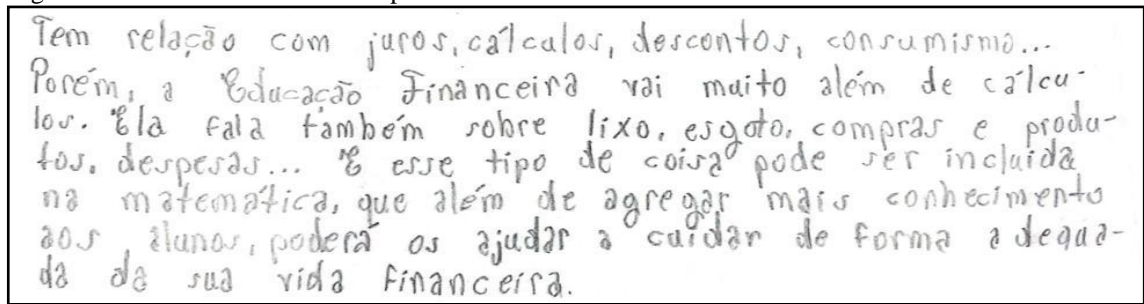 Tem relação com juros, cálculos, descontos, consumismo...
Porém, a Educação Financeira vai muito além de cálcu-
los. Ela fala também sobre lixo, esgoto, compras e produ-
tos, despesas... E esse tipo de coisa pode ser incluída
na matemática, que além de agregar mais conhecimento
aos alunos, poderá os ajudar a cuidar de forma adequa-
da da sua vida financeira.